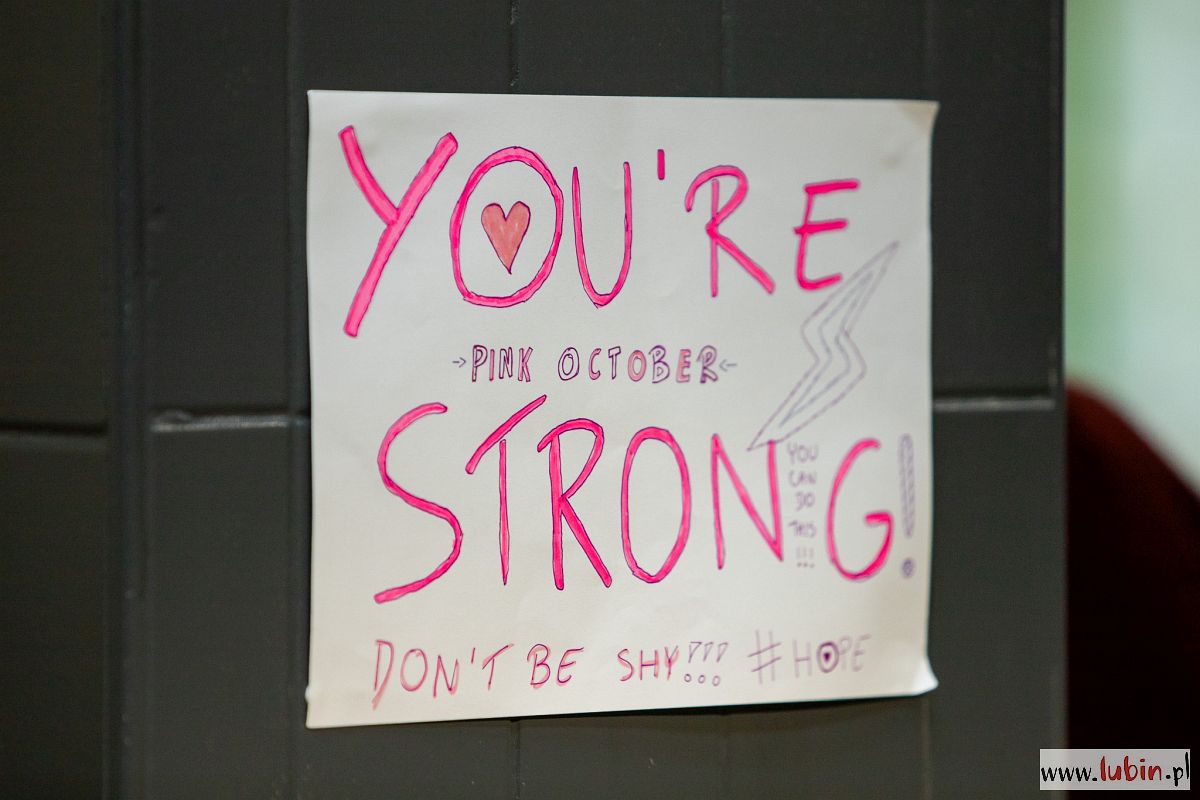 YOU'RE
→PINK OCTOBER←
STRONG!
YOU
CAN
DO
THIS
!!!
DON'T BE SHY!!! #HOPE
www.lubin.pl